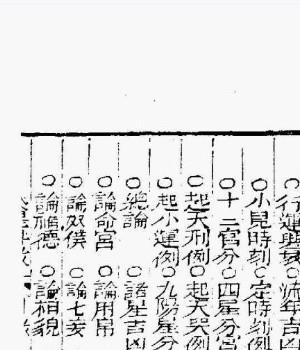 ○行運與妻○流年吉凶
○小兒時刻○定時刻例
○十二宮分○四星分宮
○起天刑例○起天哭例
○起小運例○九陽星分
○總論　○諸星吉凶
○論命宮　○論用帛
○論奴僕　○論七妾
○論福德　○論相貌